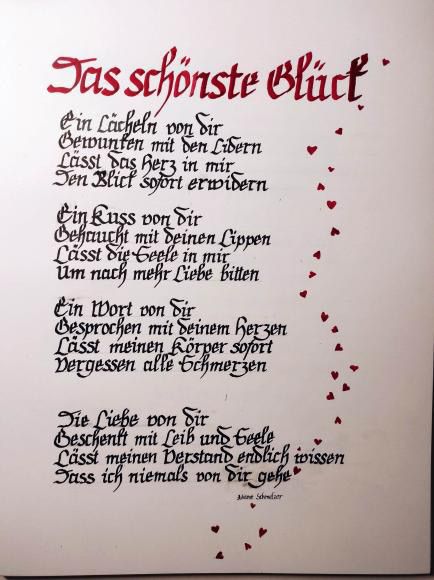 Das schönste Glück
Ein Lächeln von dir
Gewunken mit den Lidern
Lässt das Herz in mir
Den Blick sofort erwidern
Ein Kuss von dir
Gehaucht mit deinen Lippen
Lässt die Seele in mir
Um nach mehr Liebe bitten
Ein Wort von dir
Gesprochen mit deinem Herzen
Lässt meinen Körper sofort
Vergessen alle Schmerzen
Die Liebe von dir
Geschenkt mit Leib und Seele
Lässt meinen Verstand endlich wissen
Dass ich niemals von dir gehe